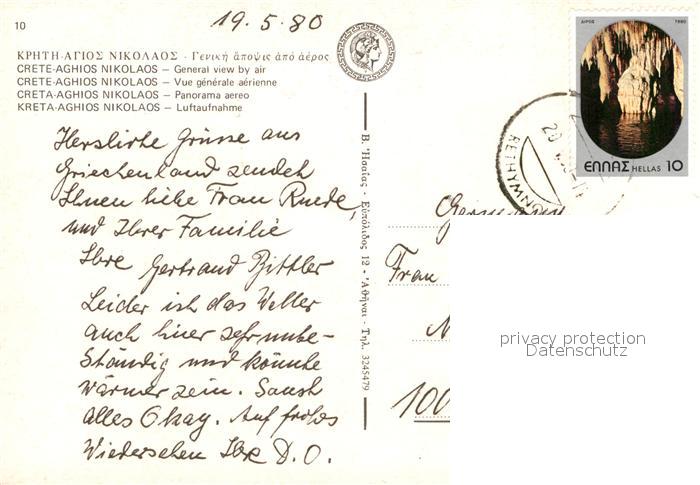 19.5.80
10
ΚΡΗΤΗ-ΑΓΙΟΣ ΝΙΚΟΛΑΟΣ - Γενική ἄποψις ἀπό ἀέρος
CRETE-AGHIOS NIKOLAOS – General view by air
CRETE-AGHIOS NIKOLAOS – Vue générale aérienne
CRETA-AGHIOS NIKOLAOS – Panorama aereo
KRETA-AGHIOS NIKOLAOS – Luftaufnahme
Herzliche Grüsse aus
Griechenland sendet
Ihnen liebe Frau Ruede,
und Ihrer Familie
Ihre Gertraud Bittler
Leider ist das Wetter
auch hier sehr unbe-
ständig und könnte
wärmer sein. Sonst
alles Okay. Auf frohes
Wiedersehen Ihre D.O.
Β. Ἡσαΐας - Εὐπόλιδος 12 - Ἀθῆναι - Τηλ. 3245479
ΔΙΡΟΣ 1980
ΕΛΛΑΣ HELLAS 10
RETHYMNON
20
Frau
100
privacy protection
Datenschutz